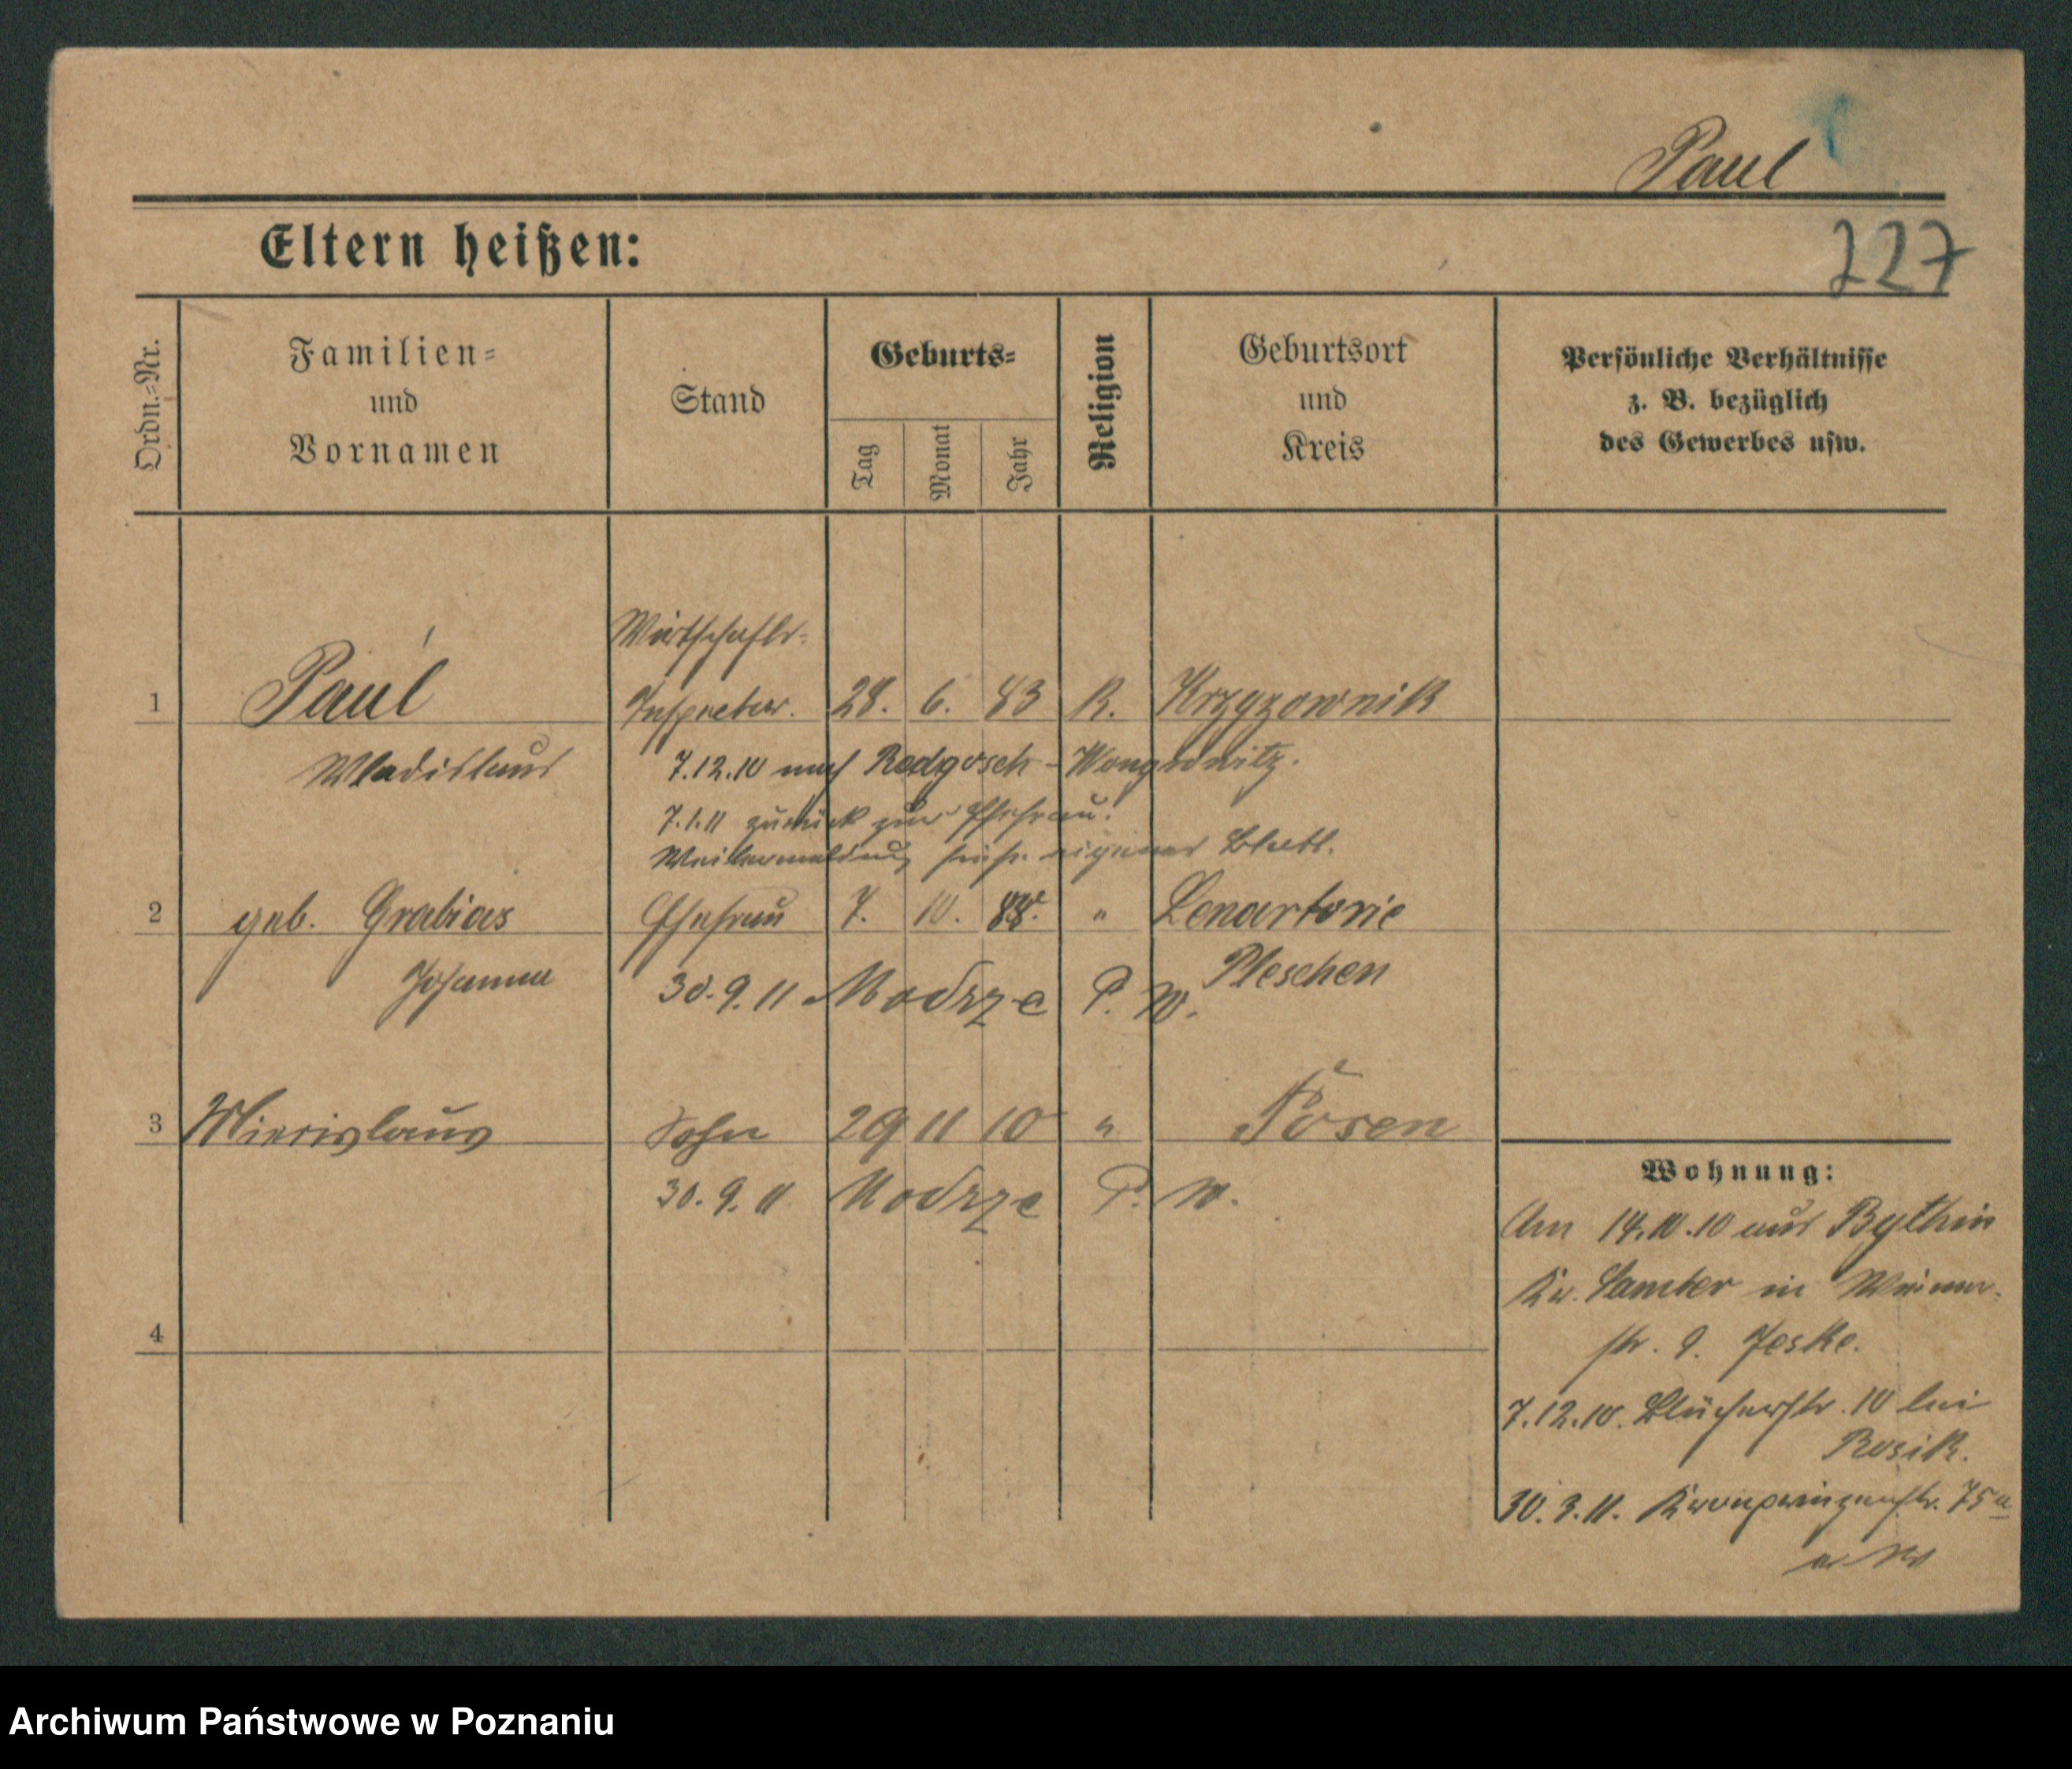 Paul
Eltern heißen:
227
Ordn.=Nr.
Familien=
und
Vornamen
Stand
Geburts=
Tag
Monat
Jahr
Religion
Geburtsort
und
Kreis
Persönliche Verhältnisse
z. B. bezüglich
des Gewerbes usw.
Wirtschafts-
1 Paul Inspector. 28. 6. 83 R. Krzyzownik
Wladislaus 7.12.10 nach Rodgosch - Wongrowitz.
7.1.11 zurück zur Ehefrau.
Weitermeldung siehe eigenes Blatt.
2 geb. Grabias Ehefrau 7. 10. 88. " Lenartovie
Johanna Pleschen
30.9.11 Modrze P. W.
3 Miecislaus Sohn 29 11 10 " Posen
30. 9. 11. Modrze P. W.
4
Wohnung:
Am 14.10.10 aus Bythin
Kr. Samter in
str. 9. Jeske.
7.12.10. Blücherstr. 10 bei
Rosik.
30.3.11. Kronprinzenstr. 75a
Archiwum Państwowe w Poznaniu